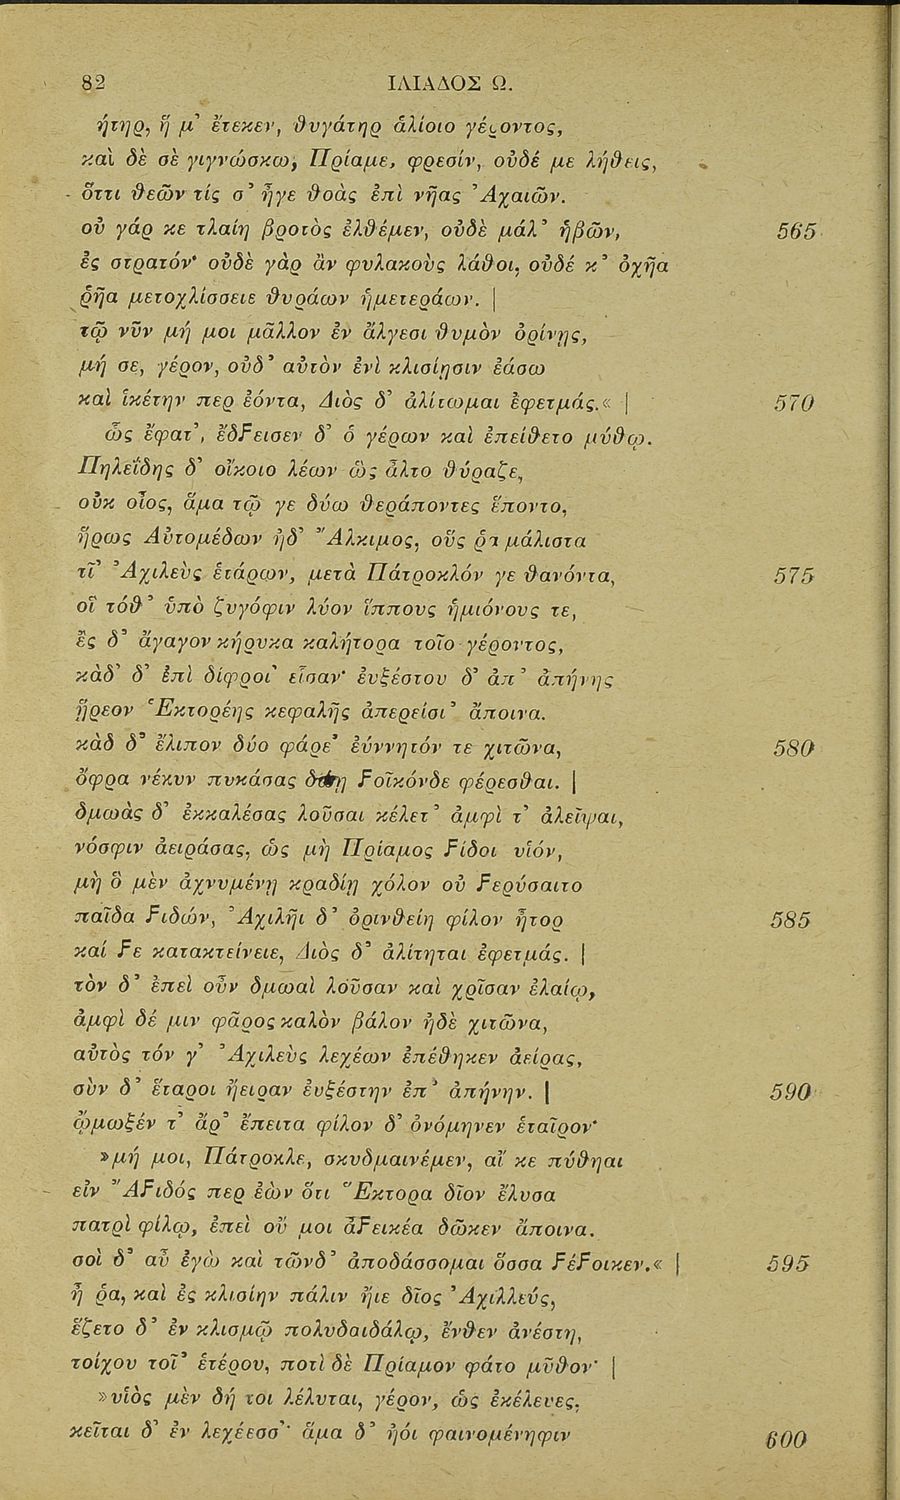 82 ΙΛΙΑΔΟΣ Ω.
ήτηρ, ἥ μ’ ἔτεκεν, θυγάτηρ ἁλίοιο γέροντος,
καὶ δὲ σὲ γιγνώσκω, Πρίαμε, φρεσίν, οὐδέ με λήθεις,
ὅττι θεῶν τίς σ’ ἦγε θοὰς ἐπὶ νῆας Ἀχαιῶν.
οὐ γάρ κε τλαίη βροτὸς ἐλθέμεν, οὐδὲ μάλ’ ἡβῶν, 565
ἐς στρατόν· οὐδὲ γὰρ ἂν φυλακοὺς λάθοι, οὐδέ κ’ ὀχῆα
ῥῆα μετοχλίσσειε θυράων ἡμετεράων. |
τῷ νῦν μή μοι μᾶλλον ἐν ἄλγεσι θυμὸν ὀρίνῃς,
μή σε, γέρον, οὐδ’ αὐτὸν ἐνὶ κλισίῃσιν ἐάσω
καὶ ἱκέτην περ ἐόντα, Διὸς δ’ ἀλίτωμαι ἐφετμάς.« | 570
ὣς ἔφατ’, ἔδϝεισεν δ’ ὁ γέρων καὶ ἐπείθετο μύθῳ.
Πηλεΐδης δ’ οἴκοιο λέων ὣς ἆλτο θύραζε,
οὐκ οἶος, ἅμα τῷ γε δύω θεράποντες ἕποντο,
ἥρως Αὐτομέδων ἠδ’ Ἄλκιμος, οὕς ῥα μάλιστα
τῖ’ Ἀχιλεὺς ἑτάρων, μετὰ Πάτροκλόν γε θανόντα, 575
οἳ τόθ’ ὑπὸ ζυγόφιν λύον ἵππους ἡμιόνους τε,
ἐς δ’ ἄγαγον κήρυκα καλήτορα τοῖο γέροντος,
κὰδ’ δ’ ἐπὶ δίφροι’ εἷσαν· ἐυξέστου δ’ ἀπ’ ἀπήνης
ᾕρεον Ἑκτορέης κεφαλῆς ἀπερείσι’ ἄποινα.
κὰδ δ’ ἔλιπον δύο φάρε’ ἐύννητόν τε χιτῶνα, 580
ὄφρα νέκυν πυκάσας δώῃ ϝοῖκόνδε φέρεσθαι. |
δμωὰς δ’ ἐκκαλέσας λοῦσαι κέλετ’ ἀμφί τ’ ἀλεῖψαι,
νόσφιν ἀειράσας, ὡς μὴ Πρίαμος ϝίδοι υἱόν,
μὴ ὃ μὲν ἀχνυμένῃ κραδίῃ χόλον οὐ ϝερύσαιτο
παῖδα ϝιδών, Ἀχιλῆι δ’ ὀρινθείη φίλον ἦτορ 585
καί ϝε κατακτείνειε, Διὸς δ’ ἀλίτηται ἐφετμάς. |
τὸν δ’ ἐπεὶ οὖν δμωαὶ λοῦσαν καὶ χρῖσαν ἐλαίῳ,
ἀμφὶ δέ μιν φᾶρος καλὸν βάλον ἠδὲ χιτῶνα,
αὐτὸς τόν γ’ Ἀχιλεὺς λεχέων ἐπέθηκεν ἀείρας,
σὺν δ’ ἕταροι ἤειραν ἐυξέστην ἐπ’ ἀπήνην. | 590
ᾤμωξέν τ’ ἄρ’ ἔπειτα φίλον δ’ ὀνόμηνεν ἑταῖρον·
»μή μοι, Πάτροκλε, σκυδμαινέμεν, αἴ κε πύθηαι
εἰν Ἄϝιδός περ ἐὼν ὅτι Ἕκτορα δῖον ἔλυσα
πατρὶ φίλῳ, ἐπεὶ οὔ μοι ἀϝεικέα δῶκεν ἄποινα.
σοὶ δ’ αὖ ἐγὼ καὶ τῶνδ’ ἀποδάσσομαι ὅσσα ϝέϝοικεν.« | 595
ἦ ῥα, καὶ ἐς κλισίην πάλιν ἤιε δῖος Ἀχιλλεύς,
ἕζετο δ’ ἐν κλισμῷ πολυδαιδάλῳ, ἔνθεν ἀνέστη,
τοίχου τοῖ’ ἑτέρου, ποτὶ δὲ Πρίαμον φάτο μῦθον· |
»υἱὸς μὲν δή τοι λέλυται, γέρον, ὡς ἐκέλευες,
κεῖται δ’ ἐν λεχέεσσ’· ἅμα δ’ ἠόι φαινομένηφιν 600